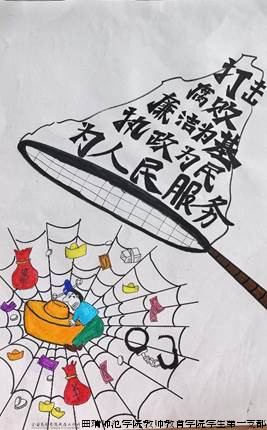 打击
腐败
廉洁为基
执政为民
为人民服务
曲靖师范学院教师教育学院学生第一支部